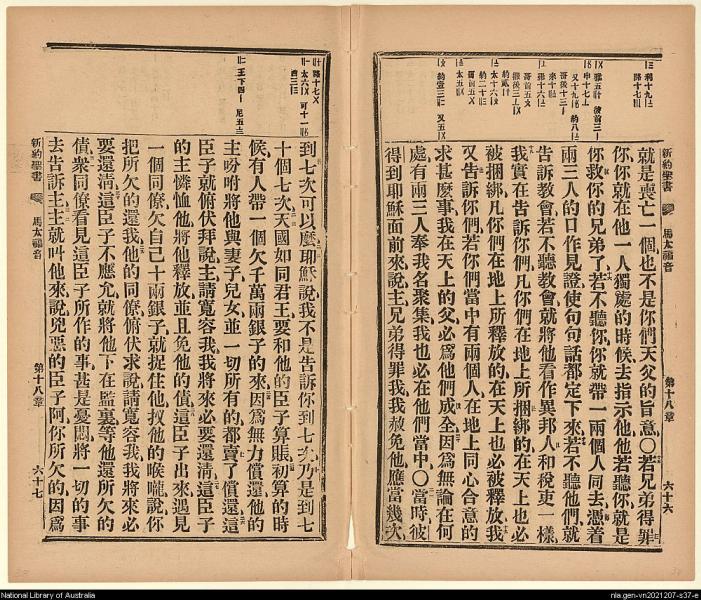 新約聖書
馬太福音
第十八章
六十六
就是喪亡一個也不是你們天父的旨意〇若兄弟得罪
你你就在他一人獨處的時候去指示他他若聽你就是
你救你的兄弟了若不聽你你就帶一兩個人同去憑着
兩三人的口作見證使句句話都定下來若不聽他們就
告訴教會若不聽教會就將他看作異邦人和稅吏一樣
我實在告訴你們凡你們在地上所捆綁的在天上也必
被捆綁凡你們在地上所釋放的在天上也必被釋放我
又告訴你們若你們當中有兩個人在地上同心合意的
求甚麼事我在天上的父必爲他們成全因爲無論在何
處有兩三人奉我名聚集我也必在他們當中〇當時彼
得到耶穌面前來說主兄弟得罪我我赦免他應當幾次
到七次可以麼耶穌說我不是告訴你到七次乃是到七
十個七次天國如同君王要和他的臣子算賬初算的時
候有人帶一個欠千萬兩銀子的來因爲無力償還他的
主吩咐將他與妻子兒女並一切所有的都賣了償還這
臣子就俯伏拜說主請寬容我我將來必要還清這臣子
的主憐恤他將他釋放並且免他的債這臣子出來遇見
一個同僚欠自己十兩銀子就捉住他扠他的喉嚨說你
把所欠的還我他的同僚俯伏求說請寬容我我將來必
要還淸這臣子不應允就將他下在監裏等他還所欠的
債衆同僚看見這臣子所作的事甚是憂悶將一切的事
去告訴主主就叫他來說兇惡的臣子阿你所欠的因爲
新約聖書
馬太福音
第十八章
六十七
National Library of Australia
nla.gen-vn2021207-s37-e